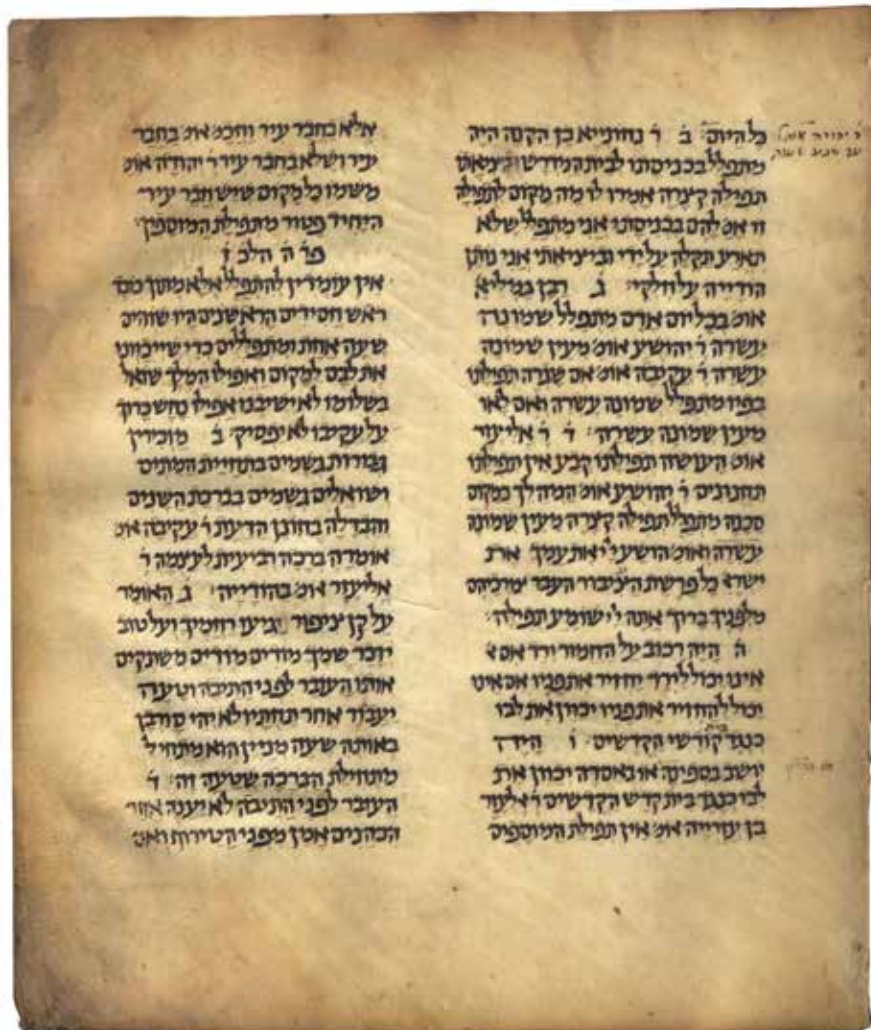 כל היום ב ר נחונייא בן הקנה היה
מתפלל בכניסתו לבית המדרש וביציאתו
תפילה קצרה אמרו לו מה מקום לתפילה
זו אמ להם בכניסתי אני מתפלל שלא
תארע תקלה על ידי וביציאתי אני נותן
הודייה על חלקי ג רבן גמליא
אומ בכל יום אדם מתפלל שמונה
עשרה ר יהושע אומ מעין שמונה
עשרה ר עקיבה אומ אם שגרה תפילתו
בפיו מתפלל שמונה עשרה ואם לאו
מעין שמונה עשרה ד ר אליעזר
אומ העושה תפילתו קבע אין תפילתו
תחנונים ר יהושע אומ המהלך במקום
סכנה מתפלל תפילה קצרה מעין שמונה
עשרה ואומ הושע יי את עמך את
ישרא כל פרשת הציבור העבר צורכיהם
מלפניך ברוך אתה יי שומיע תפילה
ה היה רכוב על החמור ירד אם
אינו יכול לירד יחזיר את פניו אם אינו
יכול להחזיר את פניו יכוון את לבו
כנגד קודשי הקדשים ו היה
יושב בספינה או באסדה יכוון את
לבו כנגד בית קדש הקדשים ר אלעזר
בן עזרייה אומ אין תפילת המוספים
אלא בחבר עיר וחכמ אומ בחבר
עיר ושלא בחבר עיר ר יהודה אומ
משמו כל מקום שיש חבר עיר
היחיד פטור מתפילת המוספין
פר ה הלכ
אין עומדין להתפלל אלא מתוך כובד
ראש חסידים הראשונים היו שוהים
שעה אחת ומתפללים כדי שיכוונו
את לבם למקום ואפילו המלך שואל
בשלומו לא ישיבנו אפילו נחש כרוך
על עקיבו לא יפסיק ב מזכירין
גבורות גשמים בתחיית המתים
ושואלים גשמים בברכת השנים
והבדלה בחונן הדעת ר עקיבה אומ
אומרה ברכה רביעית לעצמה ר
אליעזר אומ בהודייה ג האומר
על קן ציפור יגיעו רחמיך ועל טוב
יזכר שמך מודים מודים משתקים
אותו העובר לפני התיבה וטעה
יעבור אחר תחתיו ולא יהי סורבן
באותה שעה מניין הוא מתחיל
מתחילת הברכה שטעה זה ד
העובר לפני התיבה לא יענה אחר
הכהנים אמן מפני הטירוף ואם